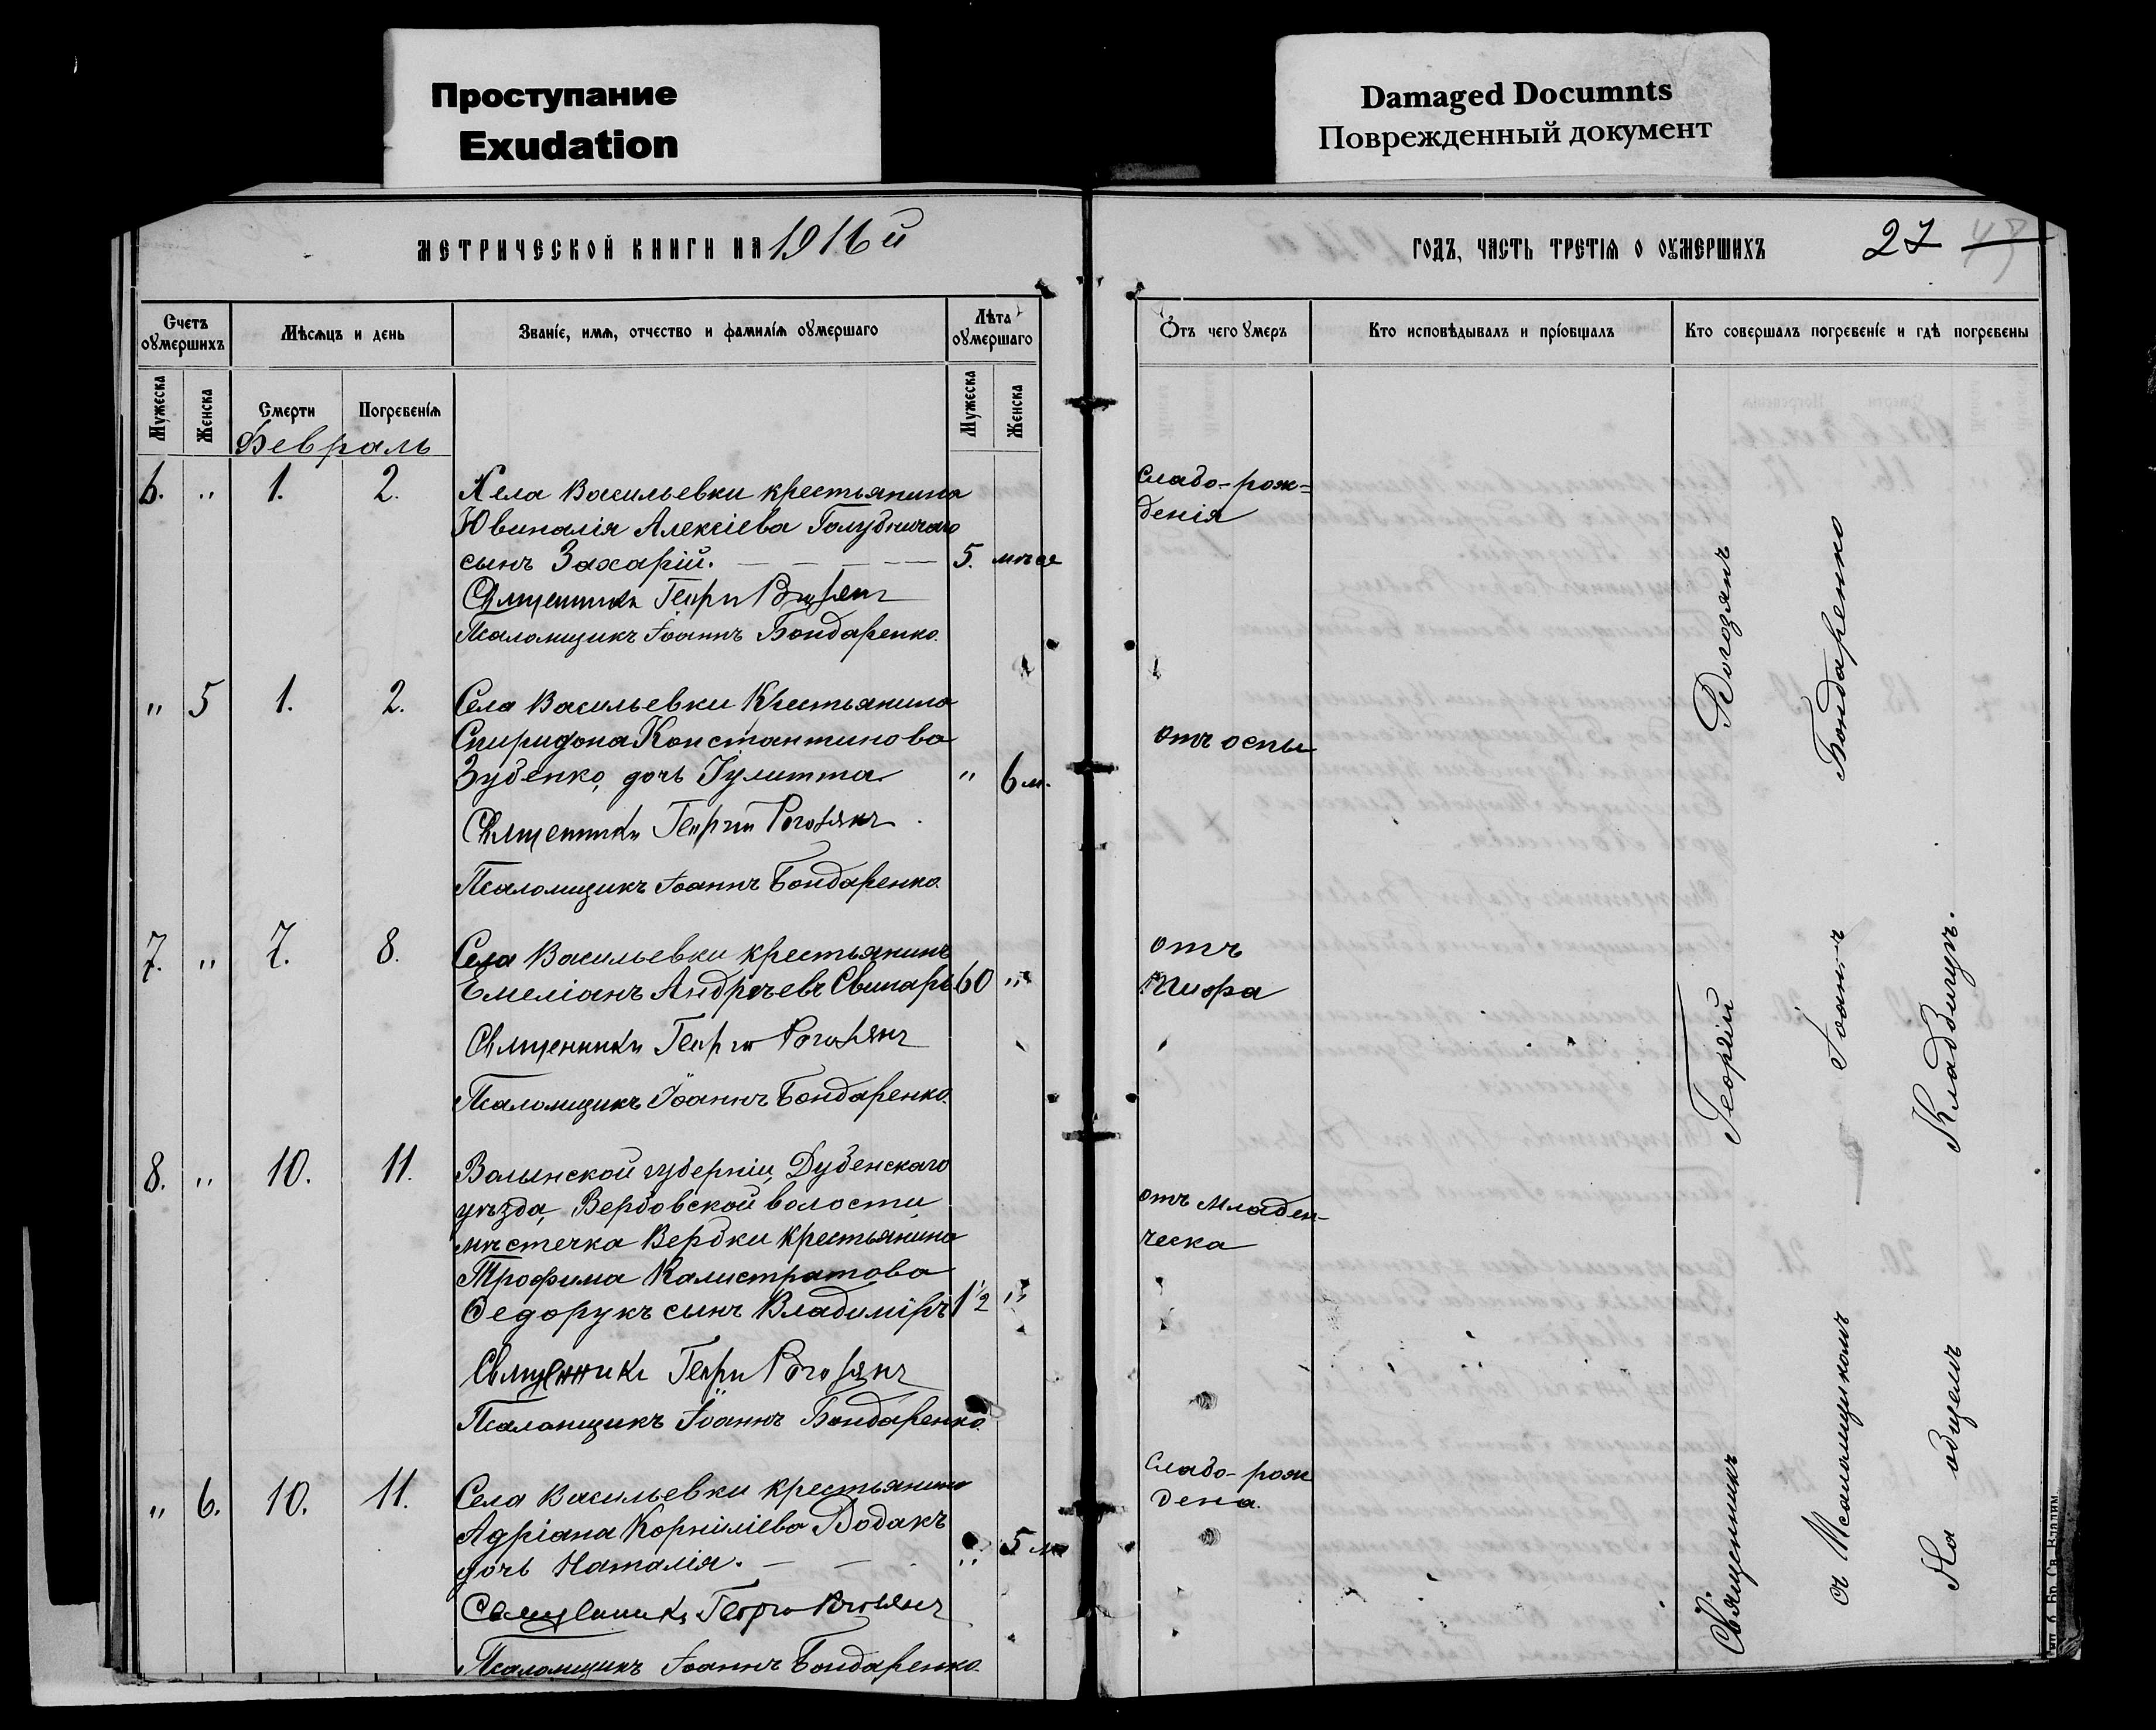 Проступание
Exudation
Damaged Documnts
Поврежденный документ
МЕТРИЧЕСКОЙ КНИГИ НА 1916 й
Счетъ оумершихъ
Мѣсяцъ и день
Званіе, имя, отчество и фамилія оумершаго
Лѣта оумершаго
Мужеска
Женска
Смерти
Погребенія
Мужеска
Женска
Февраль
6. " 1. 2. Села Васильевки крестьянина
Ювиналія Алексіева Голубничаго
сынъ Захарій. — — — — 5. мѣс
Священникъ Георгій Рогозянъ
Псаломщикъ Іоаннъ Бондаренко.
" 5 1. 2. Села Васильевки Крестьянина
Спиридона Константинова
Зубенко, дочь Іулитта " 6 м.
Священникъ Георгій Рогозянъ
Псаломщикъ Іоаннъ Бондаренко.
7. " 7. 8. Села Васильевки крестьянинъ
Емеліанъ Андреевъ Свинарь 60 "
Священникъ Георгій Рогозянъ
Псаломщикъ Іоаннъ Бондаренко.
8. " 10. 11. Волынской губерніи, Дубенскаго
уѣзда, Вербовской волости
мѣстечка Вербки крестьянина
Трофима Калистратова
Федорукъ сынъ Владиміръ 1 1/2 "
Священникъ Георгій Рогозянъ
Псаломщикъ Іоаннъ Бондаренко.
" 6. 10. 11. Села Васильевки крестьянина
Адріана Корниліева Додакъ
дочь Наталія. — — " 5 м
Священникъ Георгій Рогозянъ
Псаломщикъ Іоаннъ Бондаренко.
ГОДЪ, ЧАСТЬ ТРЕТІЯ О ОУМЕРШИХЪ 27
Отъ чего умеръ
Кто исповѣдывалъ и пріобщалъ
Кто совершалъ погребеніе и гдѣ погребены
Слабо-рож=
денія
отъ оспы
отъ
Тифа
отъ младен-
ческа
Слабо-рож
дена.
Священникъ Георгій Рогозянъ
съ Псаломщикомъ Іоаннъ Бондаренко
На общемъ Кладбищѣ.
Тип. б. Бр. Св. Владим.